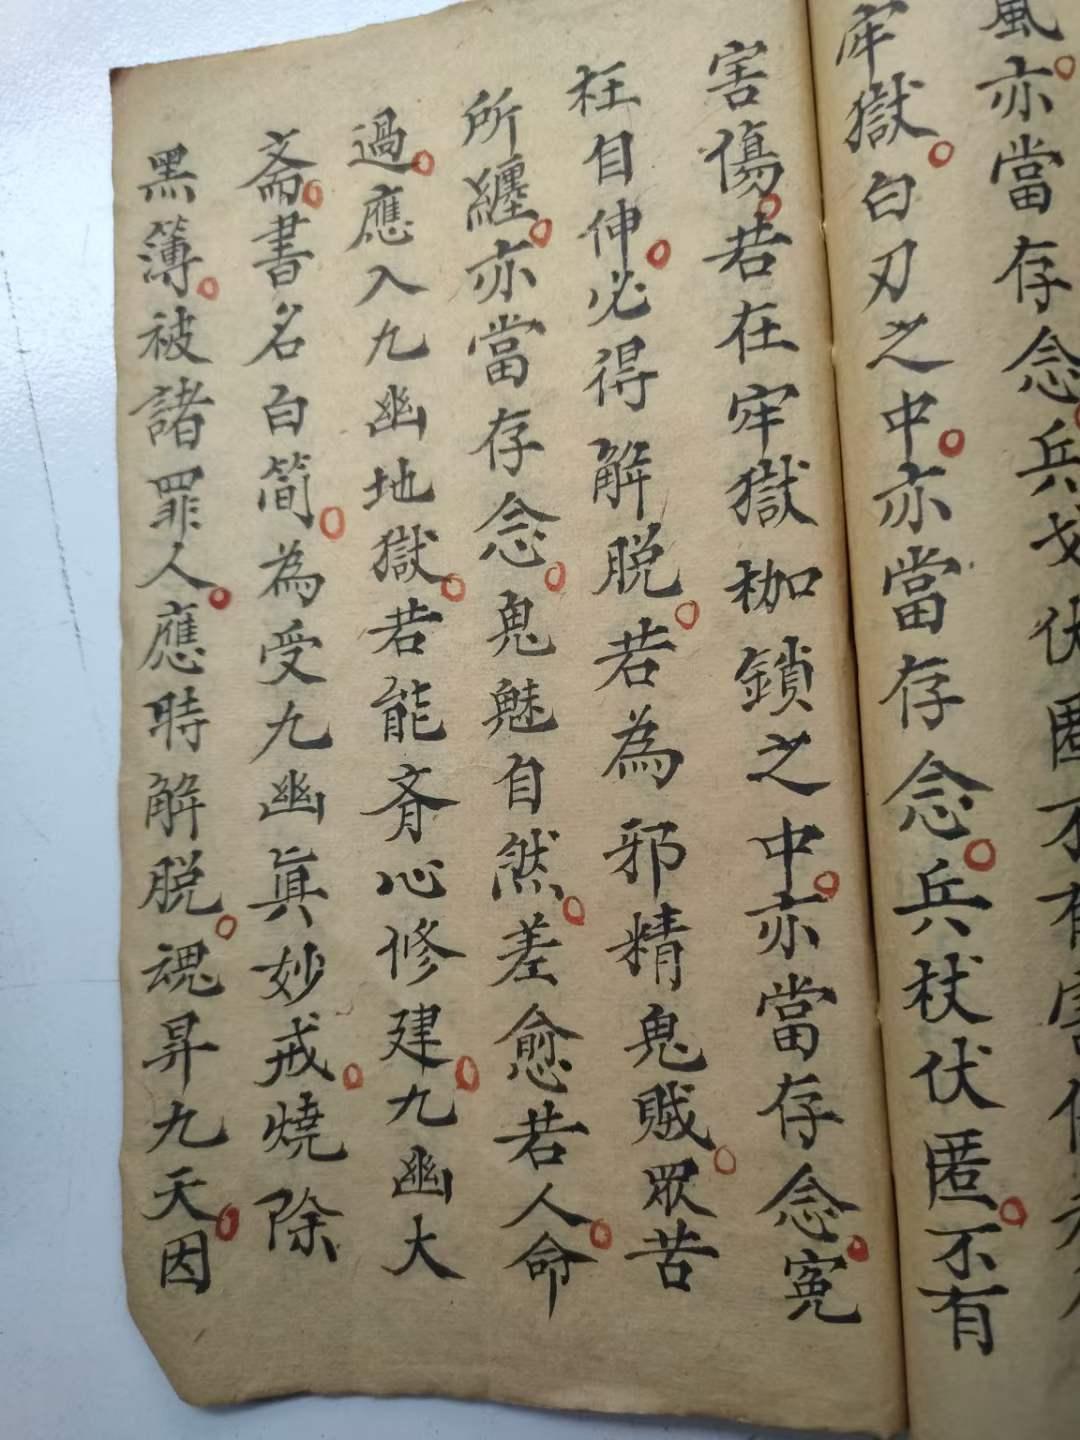 風亦當存念兵戈伏匿不有害
牢獄白刃之中亦當存念兵杖伏匿不有
害傷若在牢獄枷鎖之中亦當存念冤
枉自伸必得解脱若為邪精鬼賊眾苦
所纏亦當存念鬼魅自然差愈若人命
過應入九幽地獄若能斉心修建九幽大
斋書名白简為受九幽真妙戒燒除
黑簿被諸罪人應時解脱魂昇九天因